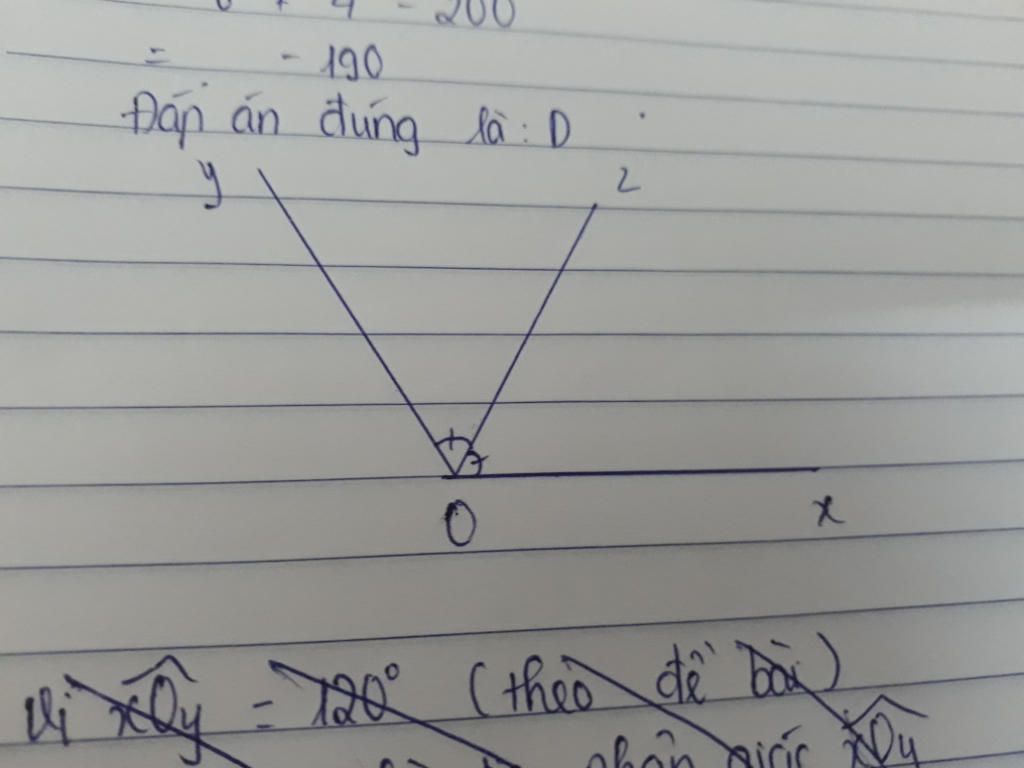 + 4 - 200
= - 190
Đáp án đúng là: D
y z
O x
Vì xOy = 120° (theo đề bài)
phân giác xOy